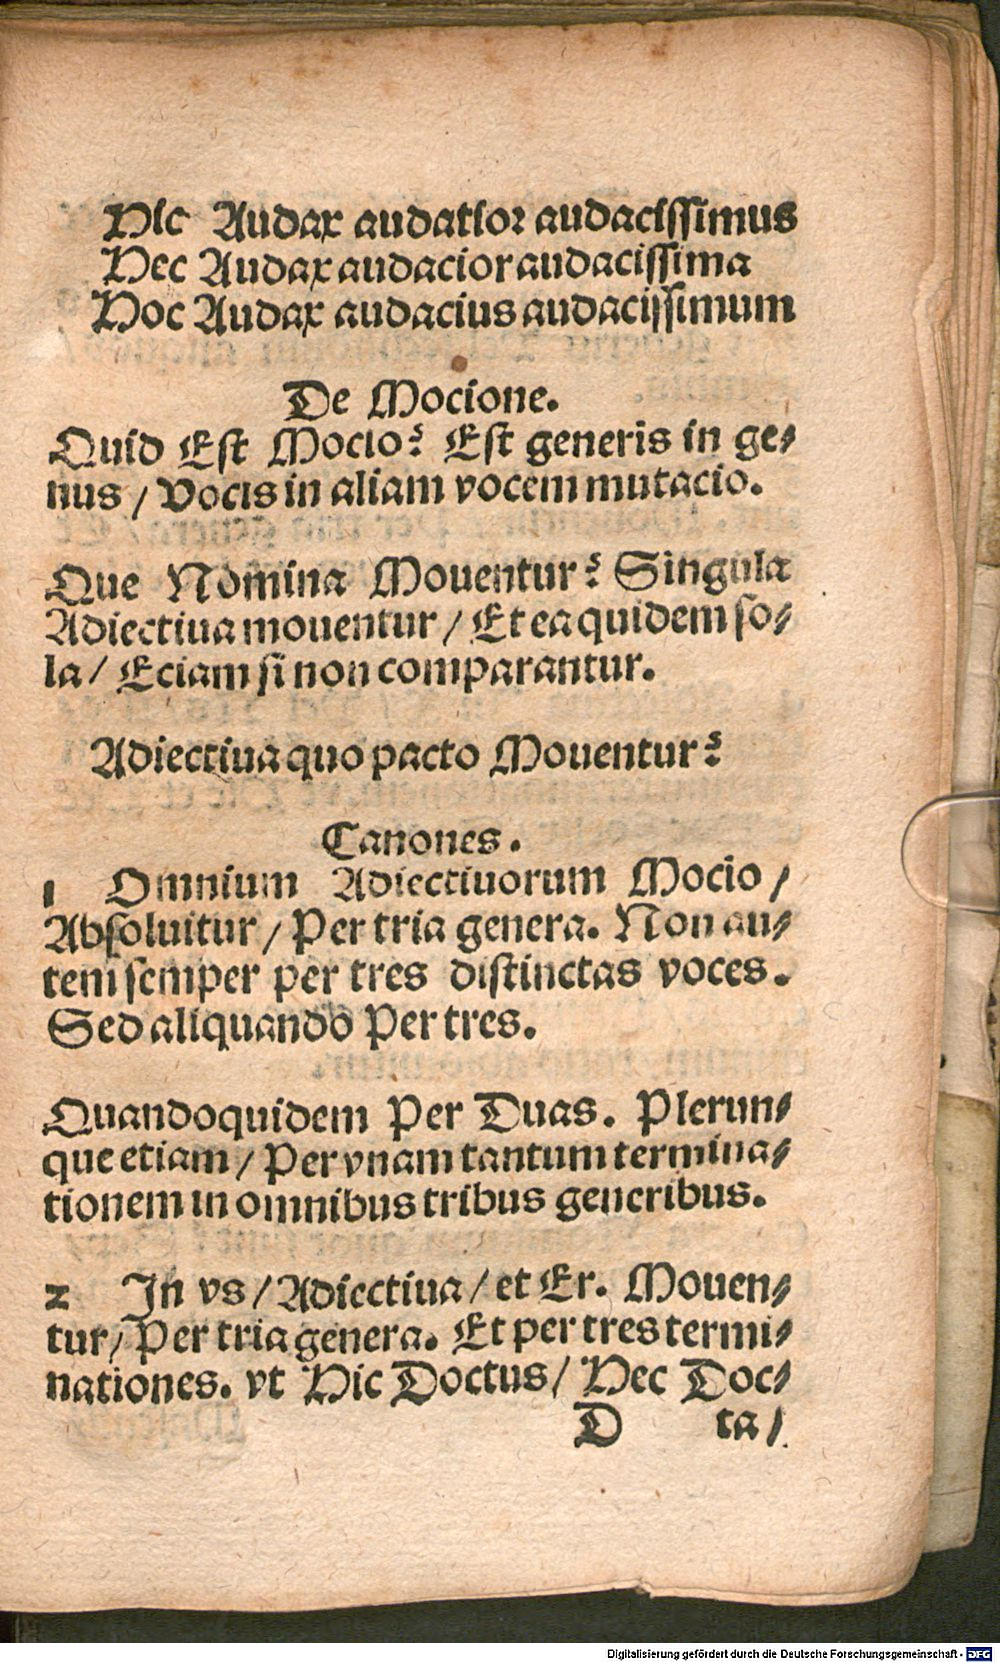 Hic Audax audatior audacissimus
Hec Audax audacior audacissima
Hoc Audax audacius audacissimum
De Mocione.
Quid Est Mocio? Est generis in ge⸗
nus / Vocis in aliam vocem mutacio.
Que Nomina Mouentur? Singula
Adiectiua mouentur / Et ea quidem so⸗
la / Eciam si non comparantur.
Adiectiua quo pacto Mouentur?
Canones.
1 Omnium Adiectiuorum Mocio /
Absoluitur / Per tria genera. Non au⸗
tem semper per tres distinctas voces.
Sed aliquando Per tres.
Quandoquidem Per Duas. Plerun⸗
que etiam / Per vnam tantum termina⸗
tionem in omnibus tribus generibus.
2 In vs / Adiectiua / et Er. Mouen⸗
tur / Per tria genera. Et per tres termi⸗
nationes. vt Hic Doctus / Hec Doc⸗
D ta /
Digitalisierung gefördert durch die Deutsche Forschungsgemeinschaft - DFG